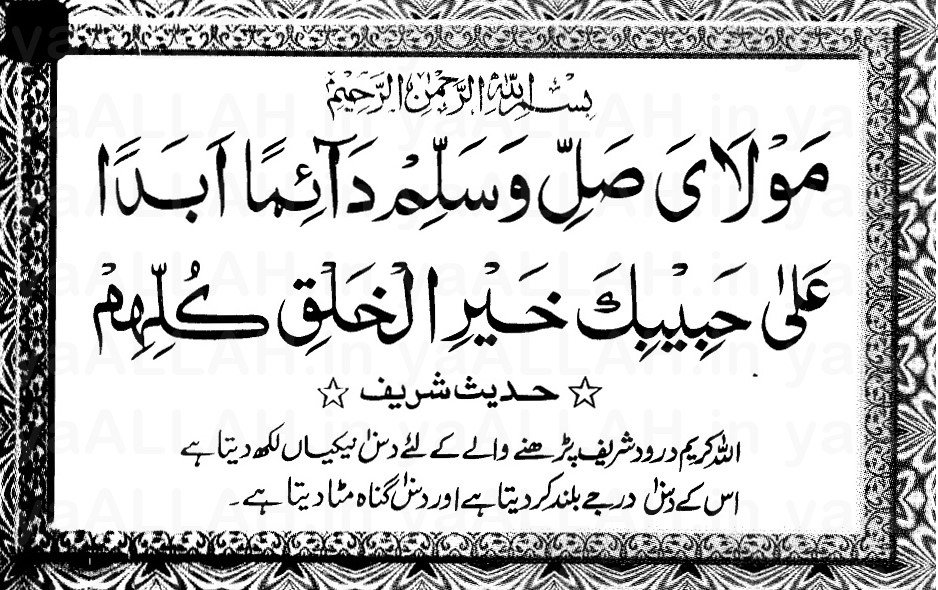 بِسْمِ اللهِ الرَّحْمٰنِ الرَّحِيْمِ
مَوْلَایَ صَلِّ وَسَلِّمْ دَآئِمًا اَبَدًا
عَلٰی حَبِیْبِكَ خَیْرِ الْخَلْقِ كُلِّهِمْ
☆ حدیث شریف ☆
اللہ کریم درود شریف پڑھنے والے کے لئے دس۱۰ نیکیاں لکھ دیتا ہے
اس کے دس۱۰ درجے بلند کر دیتا ہے اور دس۱۰ گناہ مٹا دیتا ہے۔
yaALLAH.in